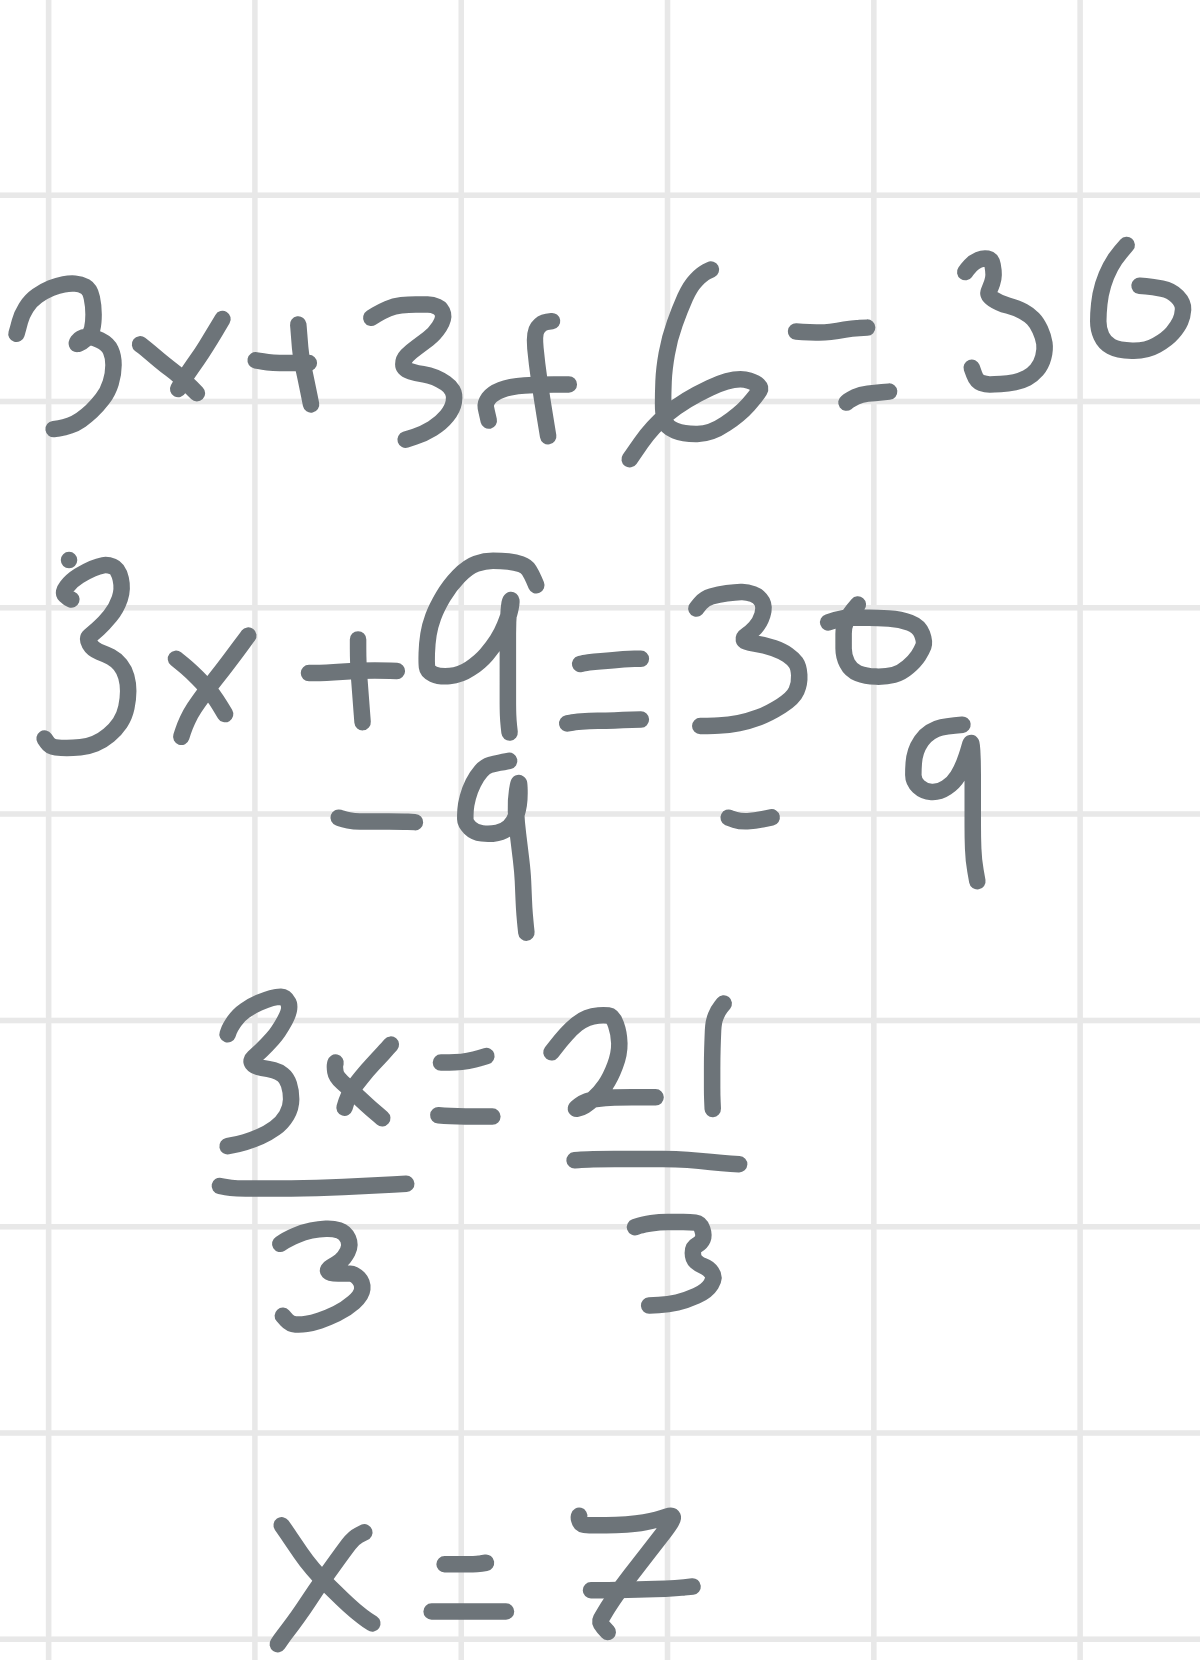 3x+3+6=30
3x+9=30
-9 - 9
3x=21
3 3
x=7